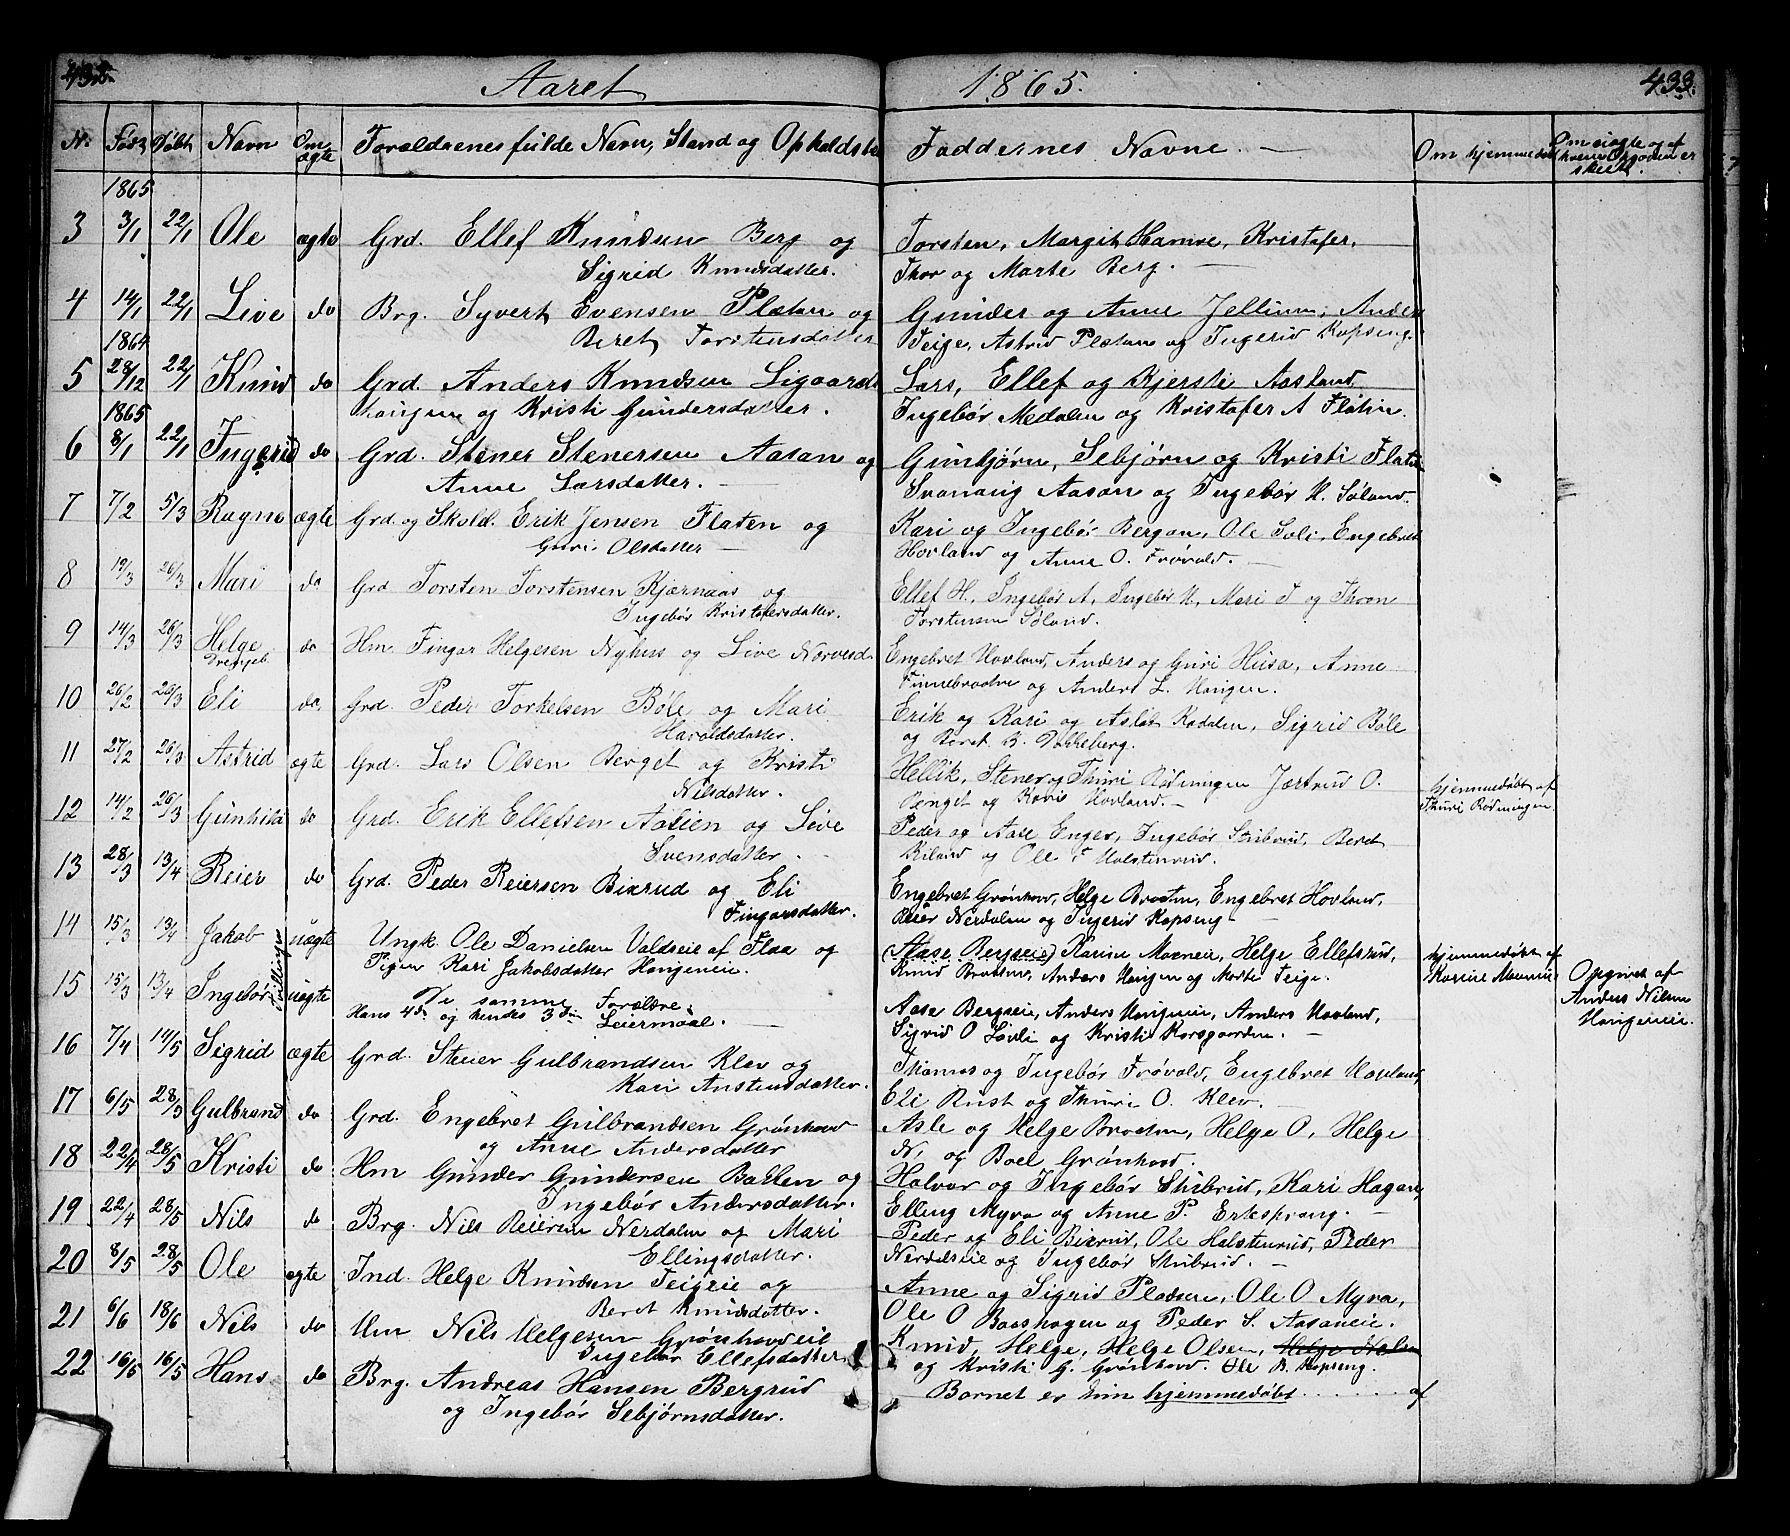 432. Aaret 1865. 433.
Nr. Født Døbt Navn Om ægte Forældrenes fulde Navn, Stand og Opholdsted Faddernes Navne. — Om hjemmedøbt Om uægte og af hvem Opgaven er skeet.
1865
3 3/1 22/1 Ole ægte Grd. Ellef Knudsen Berg og Torsten, Margit Hamre, Kristofer,
Sigrid Knudsdatter. Thor og Marte Berg. —
4 14/1 22/1 Live do Brg. Syvert Evensen Plætan og Gunder og Anne Jellum, Anders
1864 Beret Torstensdatter Teige, Astrid Plætan og Ingerid Kopseng.
5 28/12 22/1 Knud do Grd. Anders Knudsen Ligaards Lars, Ellef og Kjersti Aasland
1865 haugen og Kristi Gundersdatter. Ingebør Medalen og Kristofer A Flatin.
6 8/1 22/1 Ingerid do Grd. Stener Stenersen Aasan og Gunbjørn, Sebjørn og Kristi Flatin
Anne Larsdatter. — Svanaug Aasan og Ingebør K. Søland.
7 7/2 5/3 Ragne ægte Grd. og Skold. Erik Jensen Flaten og Kari og Ingebør Bergan, Ole Soli, Engebret
Guri Olsdatter — Hovland og Anne O. Frøvold. —
8 19/3 26/3 Mari do Grd Torsten Torstensen Kjærnaas og Ellef H., Ingebør A, Ingebør K, Mari T og Thron
Ingebør Kristofersdatter. Torstensen Søland.
9 14/3 26/3 Helge do Hm Fingar Helgesen Nyhus og Live Norvesd Engebret Hovland, Anders og Guri Husa, Anne
Drengeb. Finnebraaten og Anders L. Haugen.
10 26/2 26/3 Eli do. Grd. Peder Torkelsen Bøle og Mari Erik og Kari og Aslak Kadalen, Sigrid Bøle
Haroldsdatter. og Beret B. Dokkeberg.
11 27/2 26/3 Astrid ægte Grd. Lars Olsen Berget og Kristi Hellik, Stener og Thuri Rødningen Jærtrud O.
Nilsdatter. Berget og Karis Hovland. — hjemmedøbt af
12 14/2 26/3 Gunhild do Grd. Erik Ellefsen Aasen og Live Peder og Aase Enger, Ingebør Stubrud, Beret Thuri Rødningen.
Svensdatter. Kiland og Ole T Halstenrud.
13 28/3 13/4 Reier do Grd. Peder Reiersen Bixrud og Eli Engebret Grønhovd, Helge Braaten, Engebret Hovland,
Fingarsdatter. Reier Nerdalen og Ingerid Kopseng —
14 15/3 13/4 Jakob uægte Ungk. Ole Danielsen Valdseie af Flaa og (Aase Bergseie) Karine Moeneie, Helge Ellefsrud, hjemmedøbt af
Tvillinger Pigen Kari Jakobsdatter Haugeneie. Knud Braaten, Anders Haugen og Marte Teige. Karine Moeneie
15 15/3 13/4 Ingebør uægte De samme Forældre. Aase Bergseie, Anders Haugeneie, Anders Hovland, Opgivet af
Hans 4de og hendes 3die Leiermaal. — Sigrid O Lövli og Kristi Korsgaarden. — Anders Nilsen
Haugeneie.
16 7/4 14/5 Sigrid ægte Grd. Stener Gulbrandsen Klev og Thomas og Ingebør Frøvold, Engebret Hovland,
Kari Anstensdatter. Eli Rust og Thuri O. Klev. —
17 6/5 28/5 Gulbrand do Grd. Engebret Gulbrandsen Grønhovd Asle og Helge Braaten, Helge O, Helge
og Anne Andersdatter N, og Boel Grønhovd.
18 22/4 28/5 Kristi do Hm Gunder Gundersen Bakken og Halvor og Ingebør Stubrud, Kari Hagan,
Ingebør Andersdatter. Elling Myra og Anne P. Enkspræng. —
19 22/4 28/5 Nils do Brg. Nils Reiersen Nerdalen og Mari Peder og Eli Bixrud, Ole Halstenrud, Peder
Ellingsdatter. Nerdalseie og Ingebør Stubrud. —
20 8/5 28/5 Ole ægte Ind. Helge Knudsen Teigeie og Anne og Sigrid Plætan, Ole O Myra,
Beret Knudsdatter. Ole O Baashagen og Peder S. Aasaneie.
21 6/6 18/6 Nils do Hm Nils Helgesen Grønhovdeie Knud, Helge, Helge Olsen, Helge Nilsen
Ingebør Ellefsdatter. og Kristi G. Grønhovd. Ole B. Kopseng.
22 16/5 16/5 Hans do Brg. Andreas Hansen Bergrud Barnet er kun hjemmedøbt ........ af
og Ingebør Sebjørnsdatter.